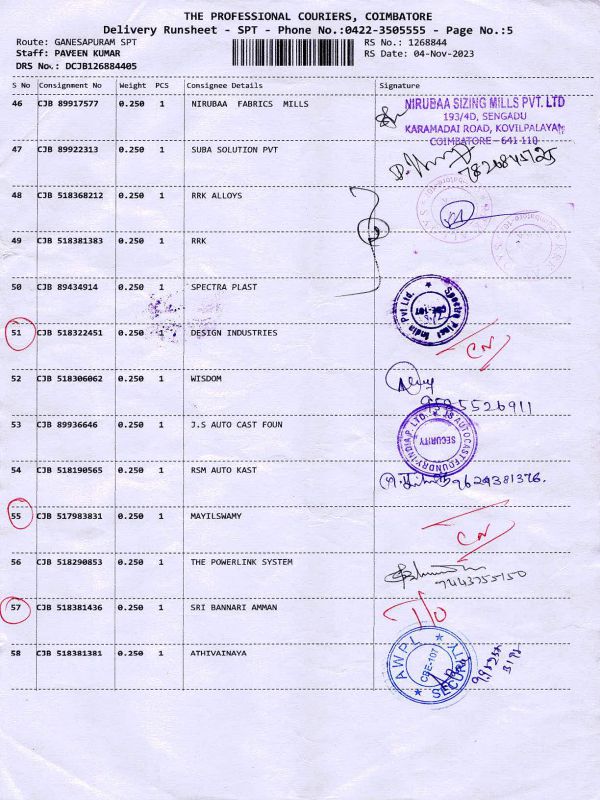 THE PROFESSIONAL COURIERS, COIMBATORE
Delivery Runsheet - SPT - Phone No.:0422-3505555 - Page No.:5
Route: GANESAPURAM SPT
RS No.: 1268844
Staff: PAVEEN KUMAR
RS Date: 04-Nov-2023
DRS No.: DCJB126884405
S No Consignment No Weight PCS Consignee Details Signature
46 CJB 89917577 0.250 1 NIRUBAA FABRICS MILLS
NIRUBAA SIZING MILLS PVT. LTD
193/4D, SENGADU
KARAMADAI ROAD, KOVILPALAYAM
COIMBATORE - 641 110
47 CJB 89922313 0.250 1 SUBA SOLUTION PVT
48 CJB 518368212 0.250 1 RRK ALLOYS
49 CJB 518381383 0.250 1 RRK
50 CJB 89434914 0.250 1 SPECTRA PLAST
Spectra Plast India Pvt Ltd.
CBE-107
51 CJB 518322451 0.250 1 DESIGN INDUSTRIES
CN
52 CJB 518306062 0.250 1 WISDOM
53 CJB 89936646 0.250 1 J.S AUTO CAST FOUN
JS AUTOCAST FOUNDRY INDIA P. LTD.
SECURITY
54 CJB 518190565 0.250 1 RSM AUTO KAST
9629381376.
55 CJB 517983831 0.250 1 MAYILSWAMY
CN
56 CJB 518290853 0.250 1 THE POWERLINK SYSTEM
57 CJB 518381436 0.250 1 SRI BANNARI AMMAN
T/O
58 CJB 518381381 0.250 1 ATHIVAINAYA
AWPL
CBE-107
SECURITY